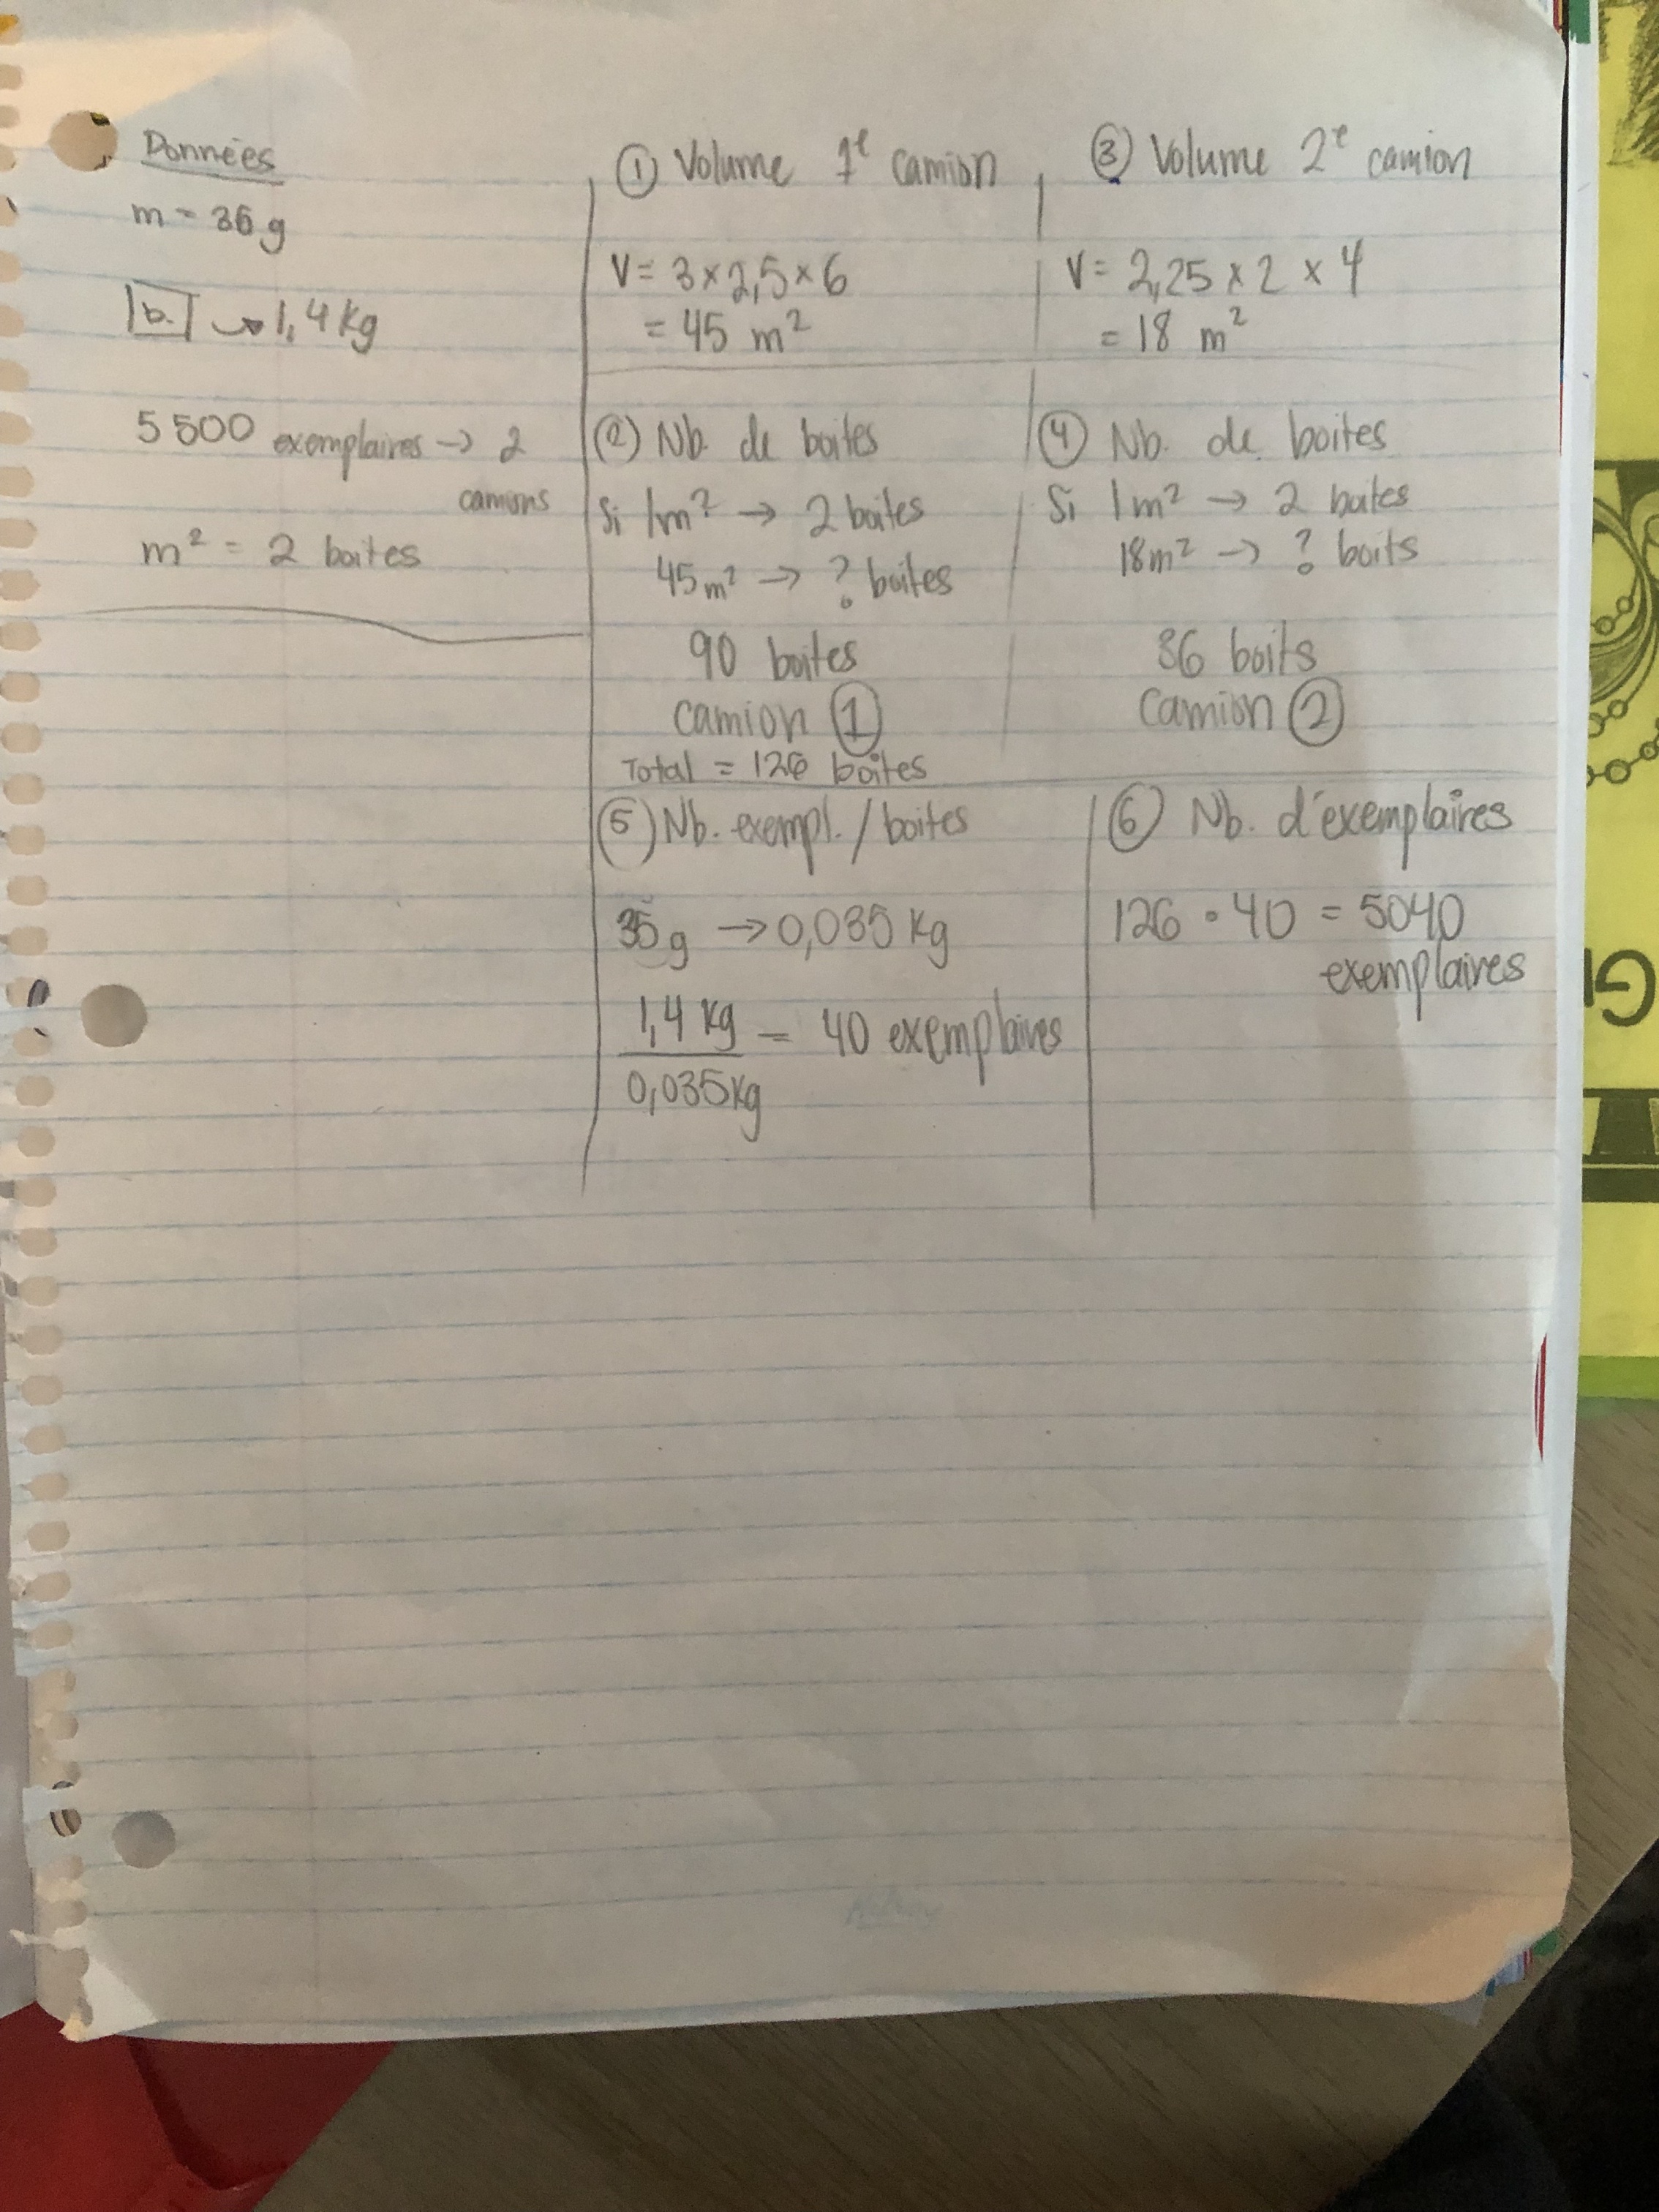 Données
m = 36 g
b. → 1,4 kg
5 500 exemplaires → 2
camions
m² = 2 boites
① Volume 1e camion
V = 3 × 2,5 × 6
= 45 m²
② Nb. de boites
Si 1m² → 2 boites
45 m² → ? boites
90 boites
camion ①
Total = 126 boites
③ Volume 2e camion
V = 2,25 × 2 × 4
= 18 m²
④ Nb. de boites
Si 1m² → 2 boites
18m² → ? boits
36 boits
camion ②
⑤ Nb. exempl. / boites
35 g → 0,035 kg
1,4 kg = 40 exemplaires
0,035 kg
⑥ Nb. d'exemplaires
126 • 40 = 5040
exemplaires